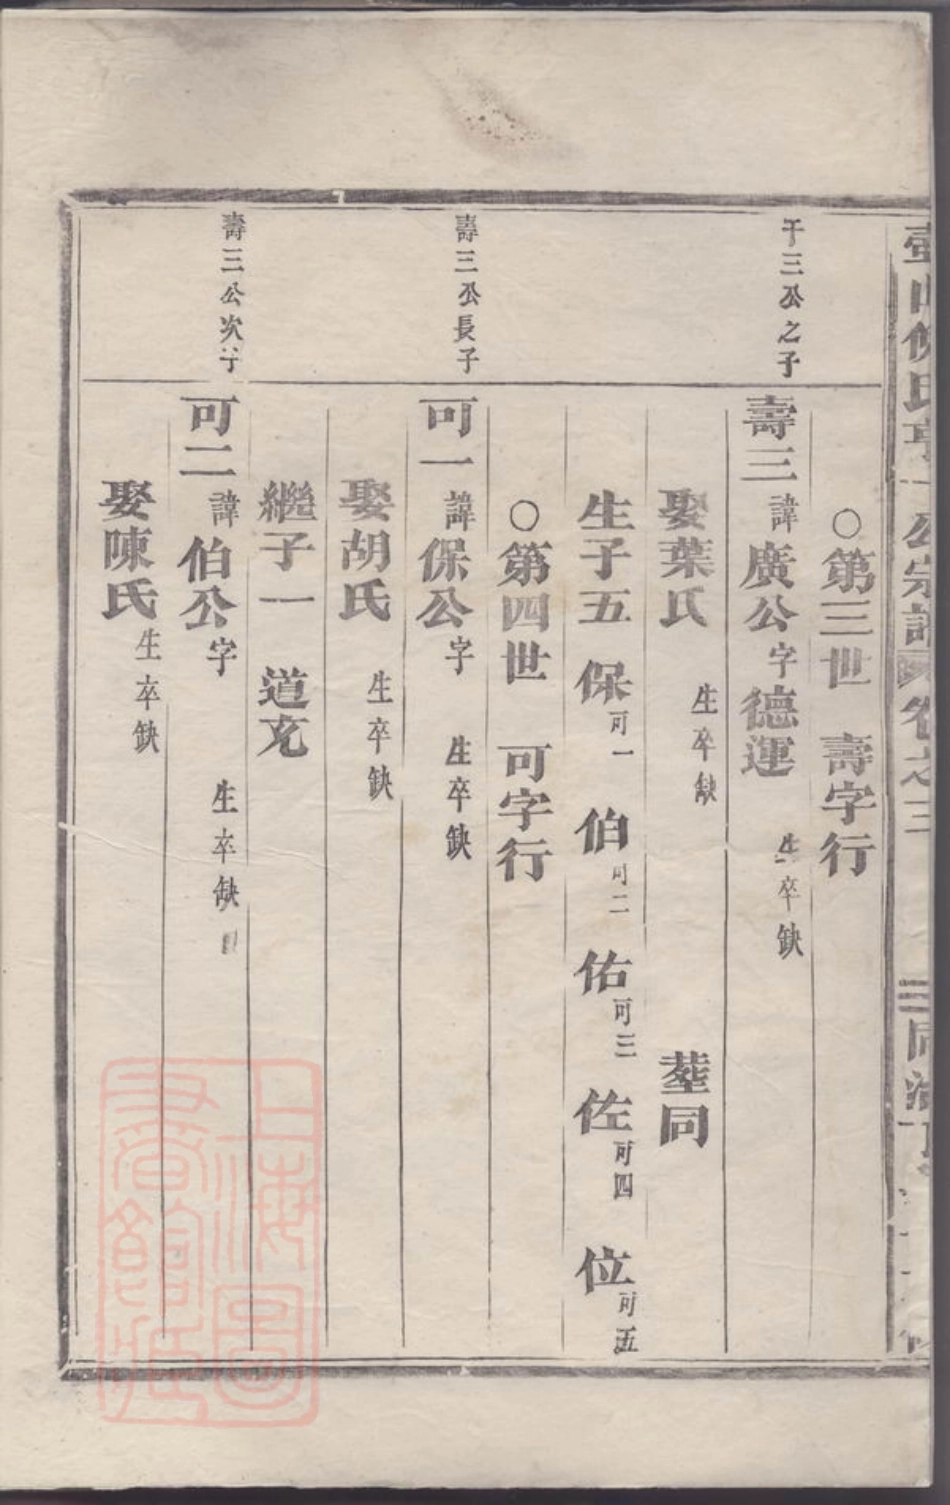 壺山侯氏享一公宗譜 卷之三 三 同治
○第三世 壽字行
千三公之子
壽三 諱 廣公 字 德運 生卒缺
娶葉氏 生卒缺 塟同
生子五 保 可一 伯 可二 佑 可三 佐 可四 位 可五
○第四世 可字行
壽三公長子
可一 諱 保公 字 生卒缺
娶胡氏 生卒缺
繼子一 道充
壽三公次子
可二 諱 伯公 字 生卒缺
娶陳氏 生卒缺
上海圖書館藏